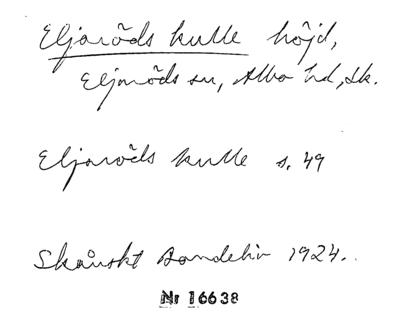 Eljaröds kulle höjd,
Eljaröds sn, Albo hd, Sk.
Eljaröds kulle s. 49
Skånskt Bondeliv 1924.
Nr 16638